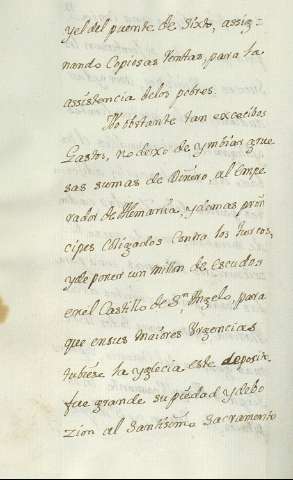 y el del puente de Sixto, assig-
nando Copiosas Rentas, para la
assistencia delos pobres.
No obstante tan excecibos
Gastos, no dexo de ymbiar grue
sas sumas de Dinero, al Empe
rador de Alemania, y demas prin
cipes Obligados contra los turcos,
y de poner un millon de escudos
en el Castillo de Sn. Angelo, para
que en sus maiores Urgencias
tubiese la yglecia este deposito
fue grande su piedad y debo
zion al Santisimo Sacramento